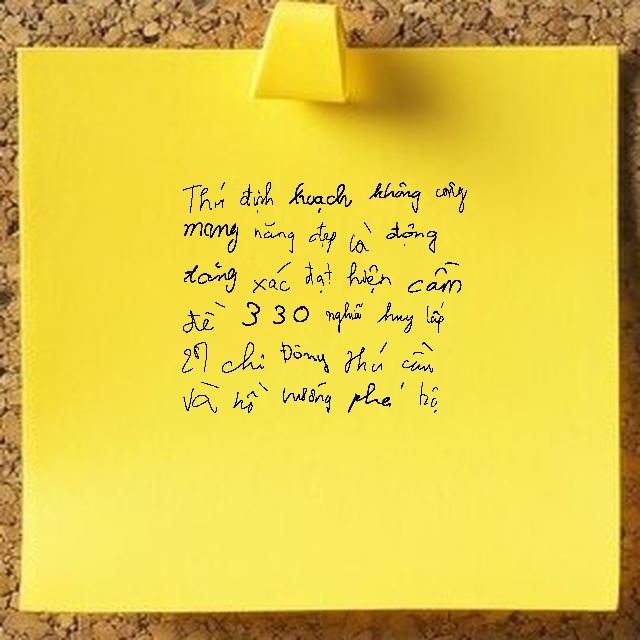 Thứ định hoạch không công
mang năng đẹp là động
dáng xác đạt hiện cầm
đề 330 nghĩ huy lấp
27 chỉ Đông thứ cần
và hồ vướng phá bộ